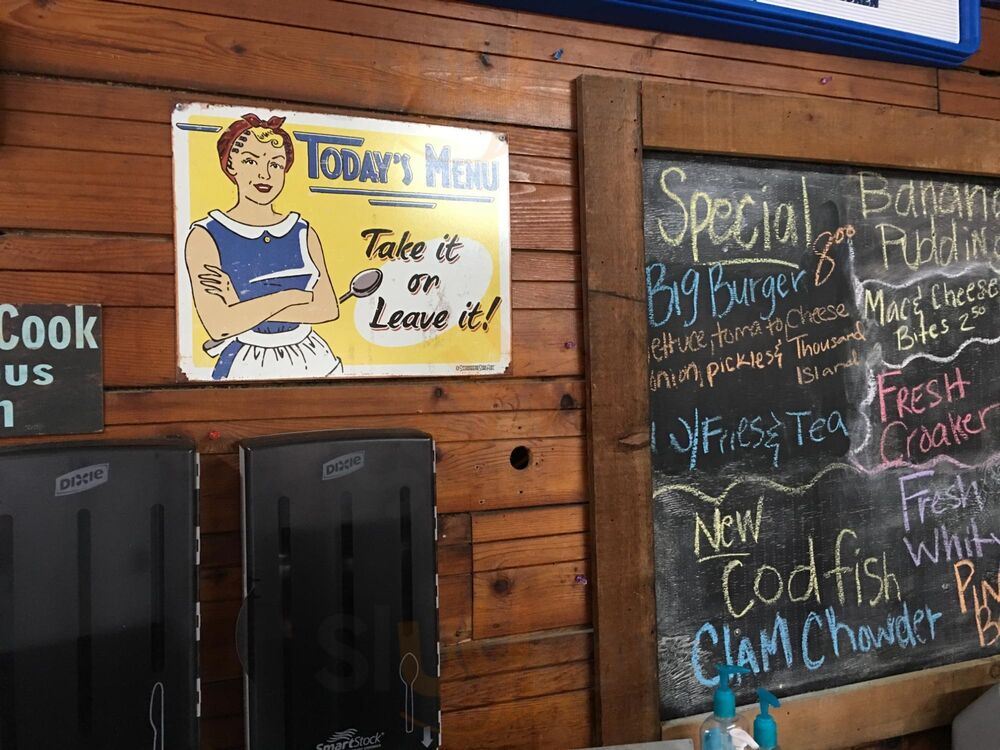 TODAY'S MENU
Take it
or
Leave it!
Cook
US
DIXIE
DIXIE
SmartStock
Special
Big Burger 8.00
lettuce, tomato, Cheese
onion, pickles & Thousand
Island
W/Fries & Tea
New
Codfish
Clam Chowder
Banan
Pudding
Mac & Cheese
Bites 2.50
FRESH
Croaker
Fresh
Whit